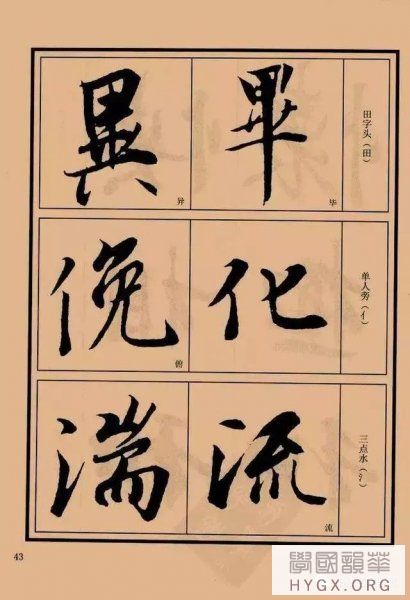 田字头（田）
畢
毕
異
异
单人旁（亻）
化
俛
俯
三点水（氵）
流
流
湍
43
學國韻華
HYGX.ORG